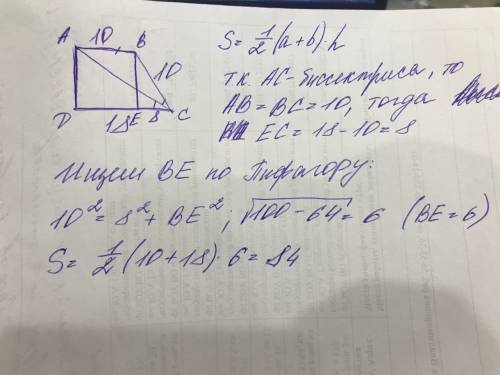 A 10 B
10
D 18 E 8 C
S = 1/2 (a+b)·h
т.к. AC-биссектриса, то
AB = BC = 10, тогда
EC = 18 - 10 = 8
Ищем BE по Пифагору:
10² = 8² + BE²; √100 - 64 = 6 (BE = 6)
S = 1/2 (10+18)·6 = 84